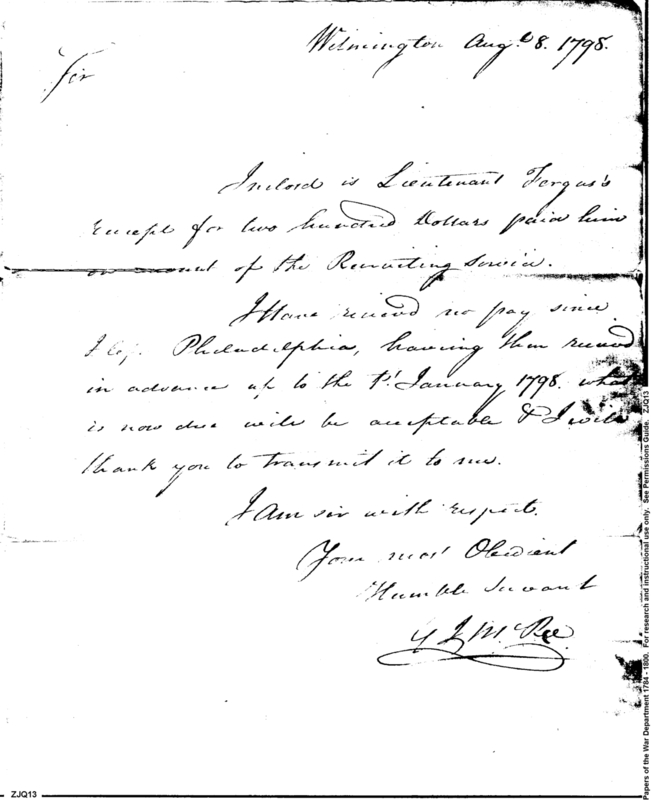 Wilmington Augt 8. 1798.
Sir
Inclosd is Lieutenant Fergus's
receipt for two hundred Dollars paid him
on account of the Recruiting Service.
I Have receivd no pay since
I left Philadelphia, having then receivd
in advance up to the 1st January 1798. what
is now due will be acceptable & I will
thank you to transmit it to me.
I Am sir with respect.
Your most Obedient
Humble Servant
G J McRee
ZJQ13
Papers of the War Department 1784 - 1800. For research and instructional use only. See Permissions Guide. ZJQ13